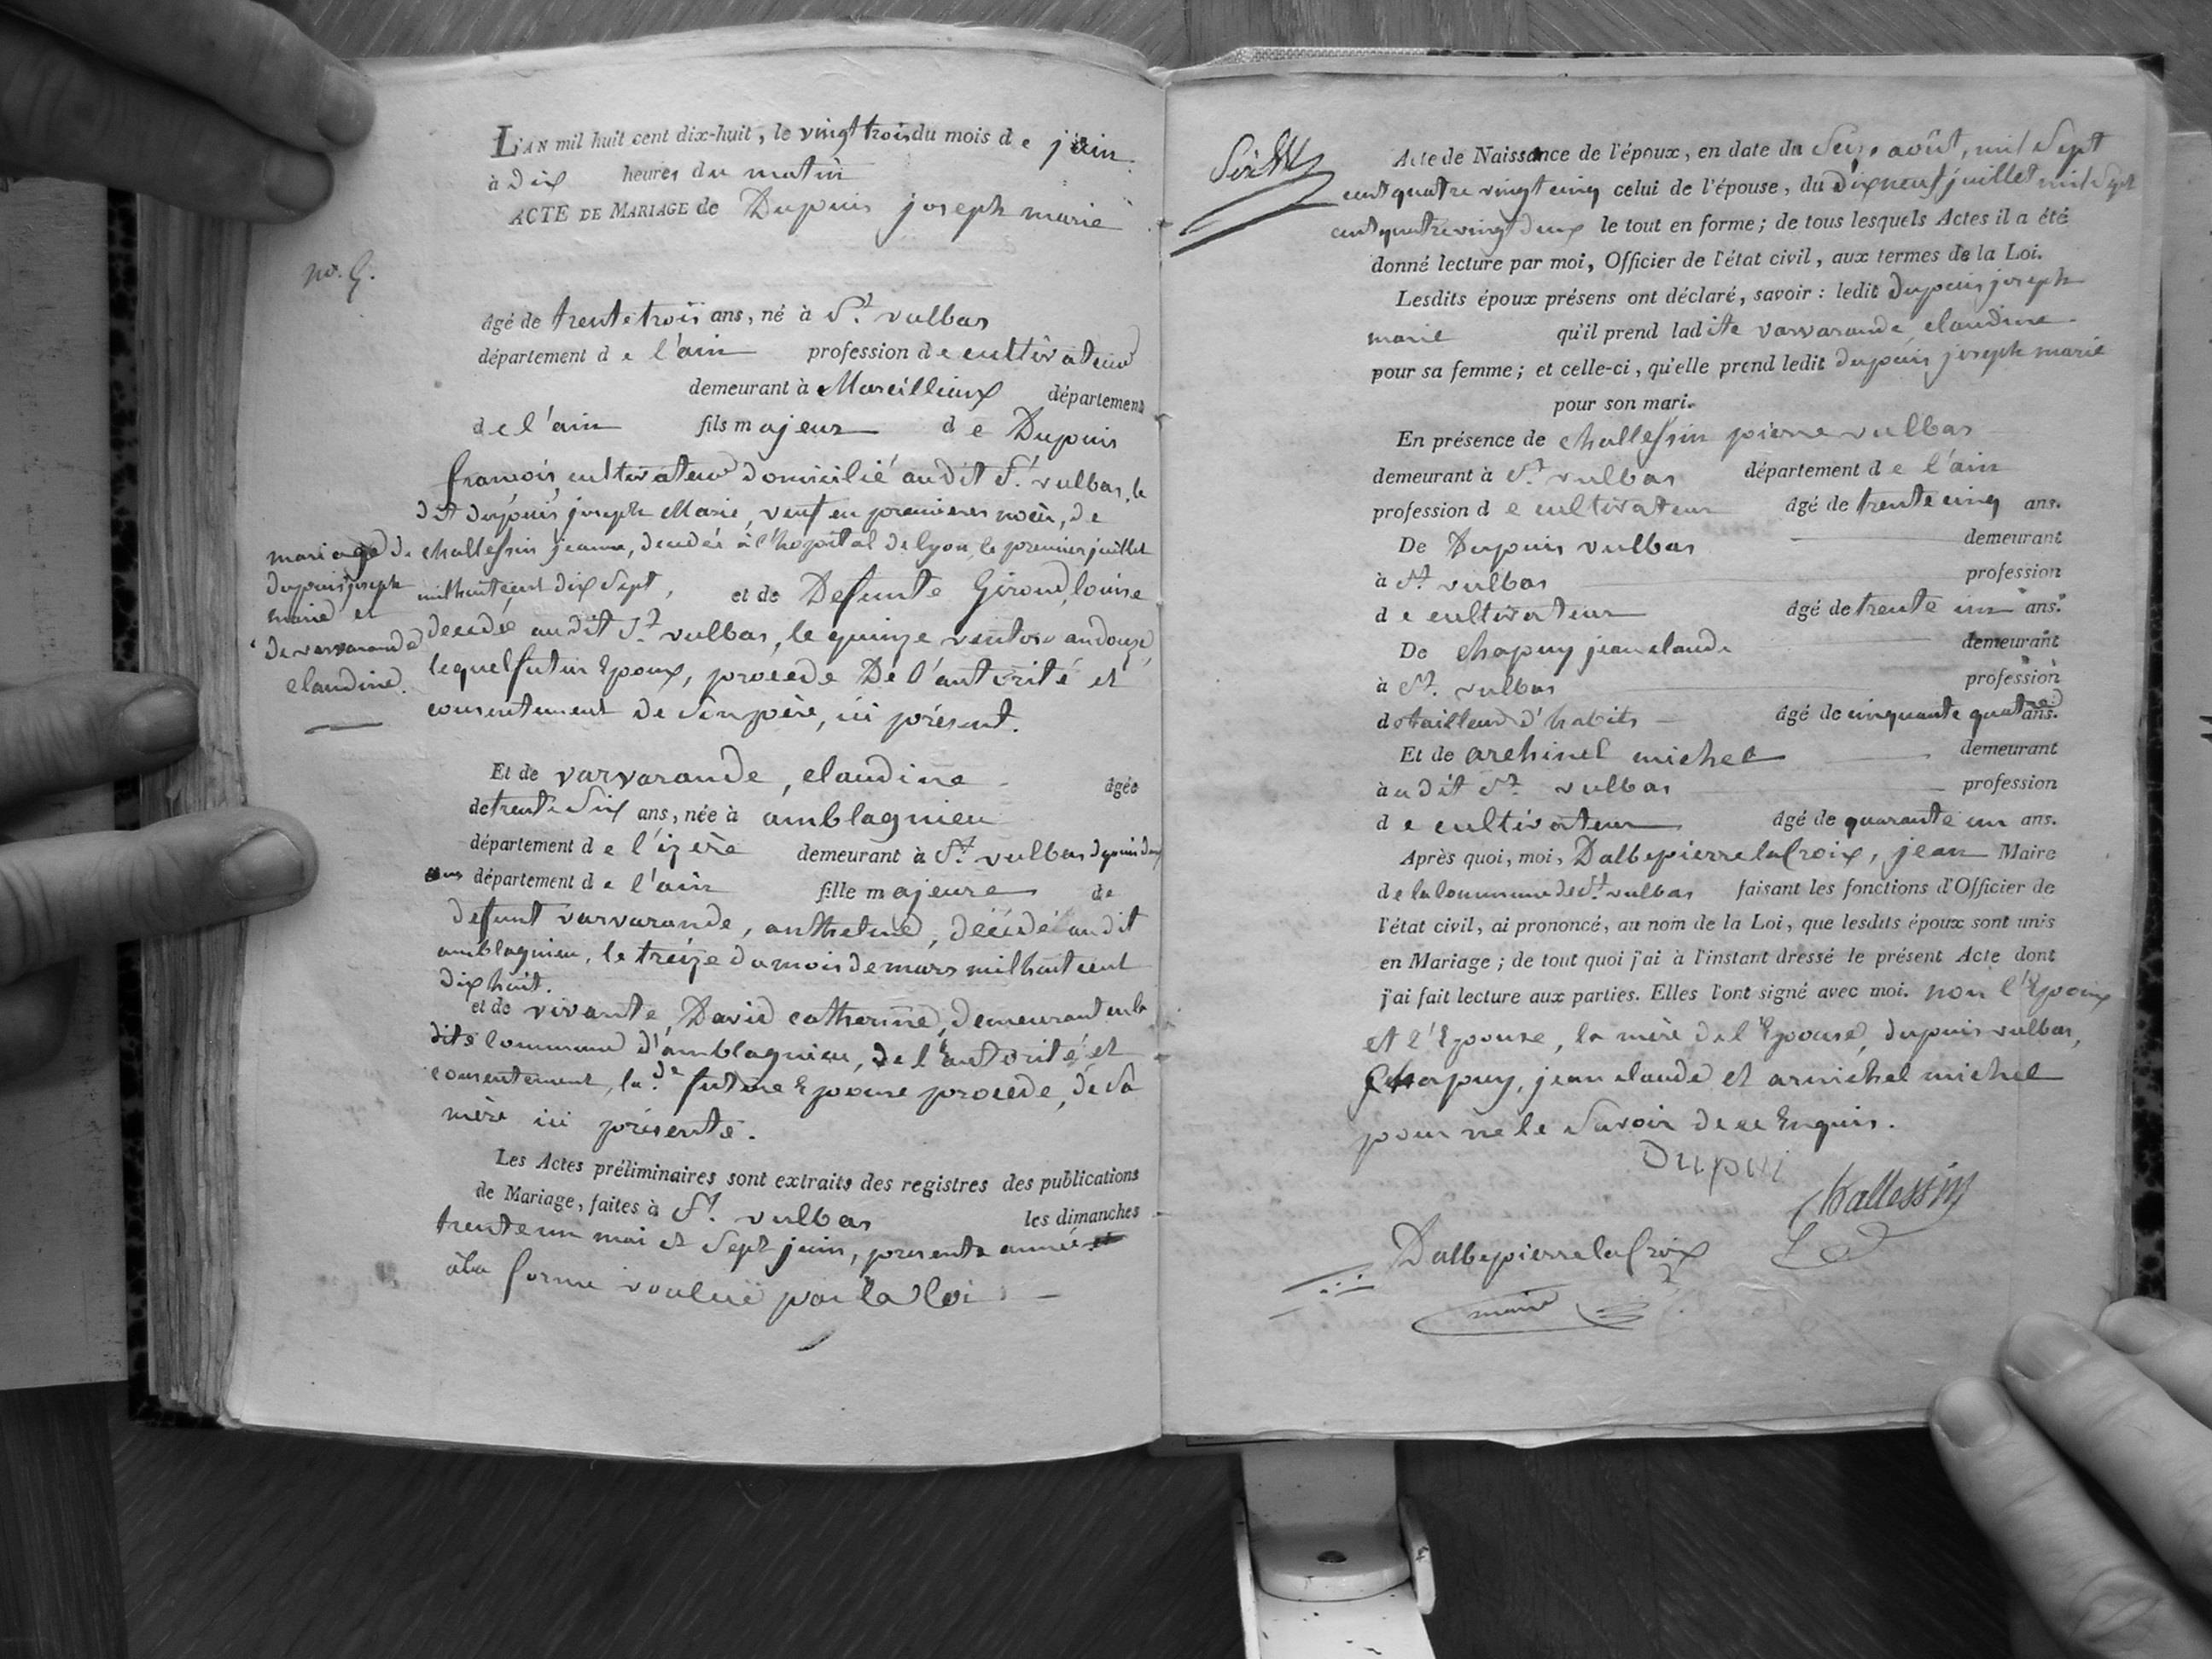 L'AN mil huit cent dix-huit, le vingt trois du mois de juin
à dix heures du matin
ACTE DE MARIAGE de Dupuis joseph marie
âgé de trente trois ans, né à St. vulbas
département de l'ain profession de cultivateur
demeurant à Marcillieux département
de l'ain fils majeur de Dupuis
francois, cultivateur domicilié audit St. vulbas, le
dit dupuis joseph Marie, veuf en premieres noces, de
challessin jeanne, decedée à l'hopital de lyon, le premier juillet
mil huit cent dix Sept, et de Defunte Giroud, louise
decedée audit St. vulbas, le quinze ventose an douze,
lequel futur Epoux, procede De l'autorité et
consentement de Son père, ici présent.
mariage de
dupuis joseph
marie et
de varvarande
claudine.
Et de varvarande, claudine âgée
de trente Six ans, née à amblagnieu
département de l'izère demeurant à St. vulbas depuis deux
ans département de l'ain fille majeure de
defunt varvarande, anthelme, décédé audit
amblagnieu, le treize du mois de mars mil huit cent
dix huit.
et de vivante, David catherine, demeurant en la
dite Commune d'amblagnieu, de l'autorité et
consentement, la de. future Epouse procede, de Sa
mère ici présente.
Les Actes préliminaires sont extraits des registres des publications
de Mariage, faites à St. vulbas les dimanches
trente un mai et Sept juin, presente année
à la forme voulue par la loi
Acte de Naissance de l'époux, en date du Seize août, mil Sept
cent quatre vingt cinq celui de l'épouse, du dix neuf juillet mil Sept
cent quatre vingt deux le tout en forme; de tous lesquels Actes il a été
donné lecture par moi, Officier de l'état civil, aux termes de la Loi.
Lesdits époux présens ont déclaré, savoir: ledit dupuis joseph
marie qu'il prend ladite varvarande claudine
pour sa femme; et celle-ci, qu'elle prend ledit dupuis joseph marie
pour son mari.
En présence de challessin pierre vulbas
demeurant à St. vulbas département de l'ain
profession de cultivateur âgé de trente cinq ans.
De Dupuis vulbas demeurant
à St. vulbas profession
de cultivateur âgé de trente un ans.
De chapuy jean claude demeurant
à St. vulbas profession
de tailleur d'habits âgé de cinquante quatre ans.
Et de archinel michel demeurant
à udit St. vulbas profession
de cultivateur âgé de quarante un ans.
Après quoi, moi, Dalbepierre laCroix, jean Maire
de la Commune de St. vulbas faisant les fonctions d'Officier de
l'état civil, ai prononcé, au nom de la Loi, que lesdits époux sont unis
en Mariage; de tout quoi j'ai à l'instant dressé le présent Acte dont
j'ai fait lecture aux parties. Elles l'ont signé avec moi. non l'Epoux
et l'Epouse, la mère de l'Epouse, dupuis vulbas,
Chapuy, jean claude et arnichel michel
pour ne le Savoir de ce Enquis.
Dupui
Challessin
Dalbepierre laCroix
maire